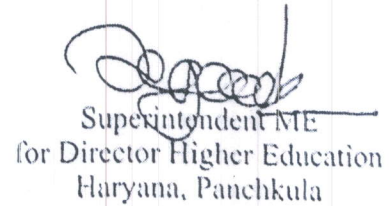 Superintendent ME
for Director Higher Education
Haryana, Panchkula